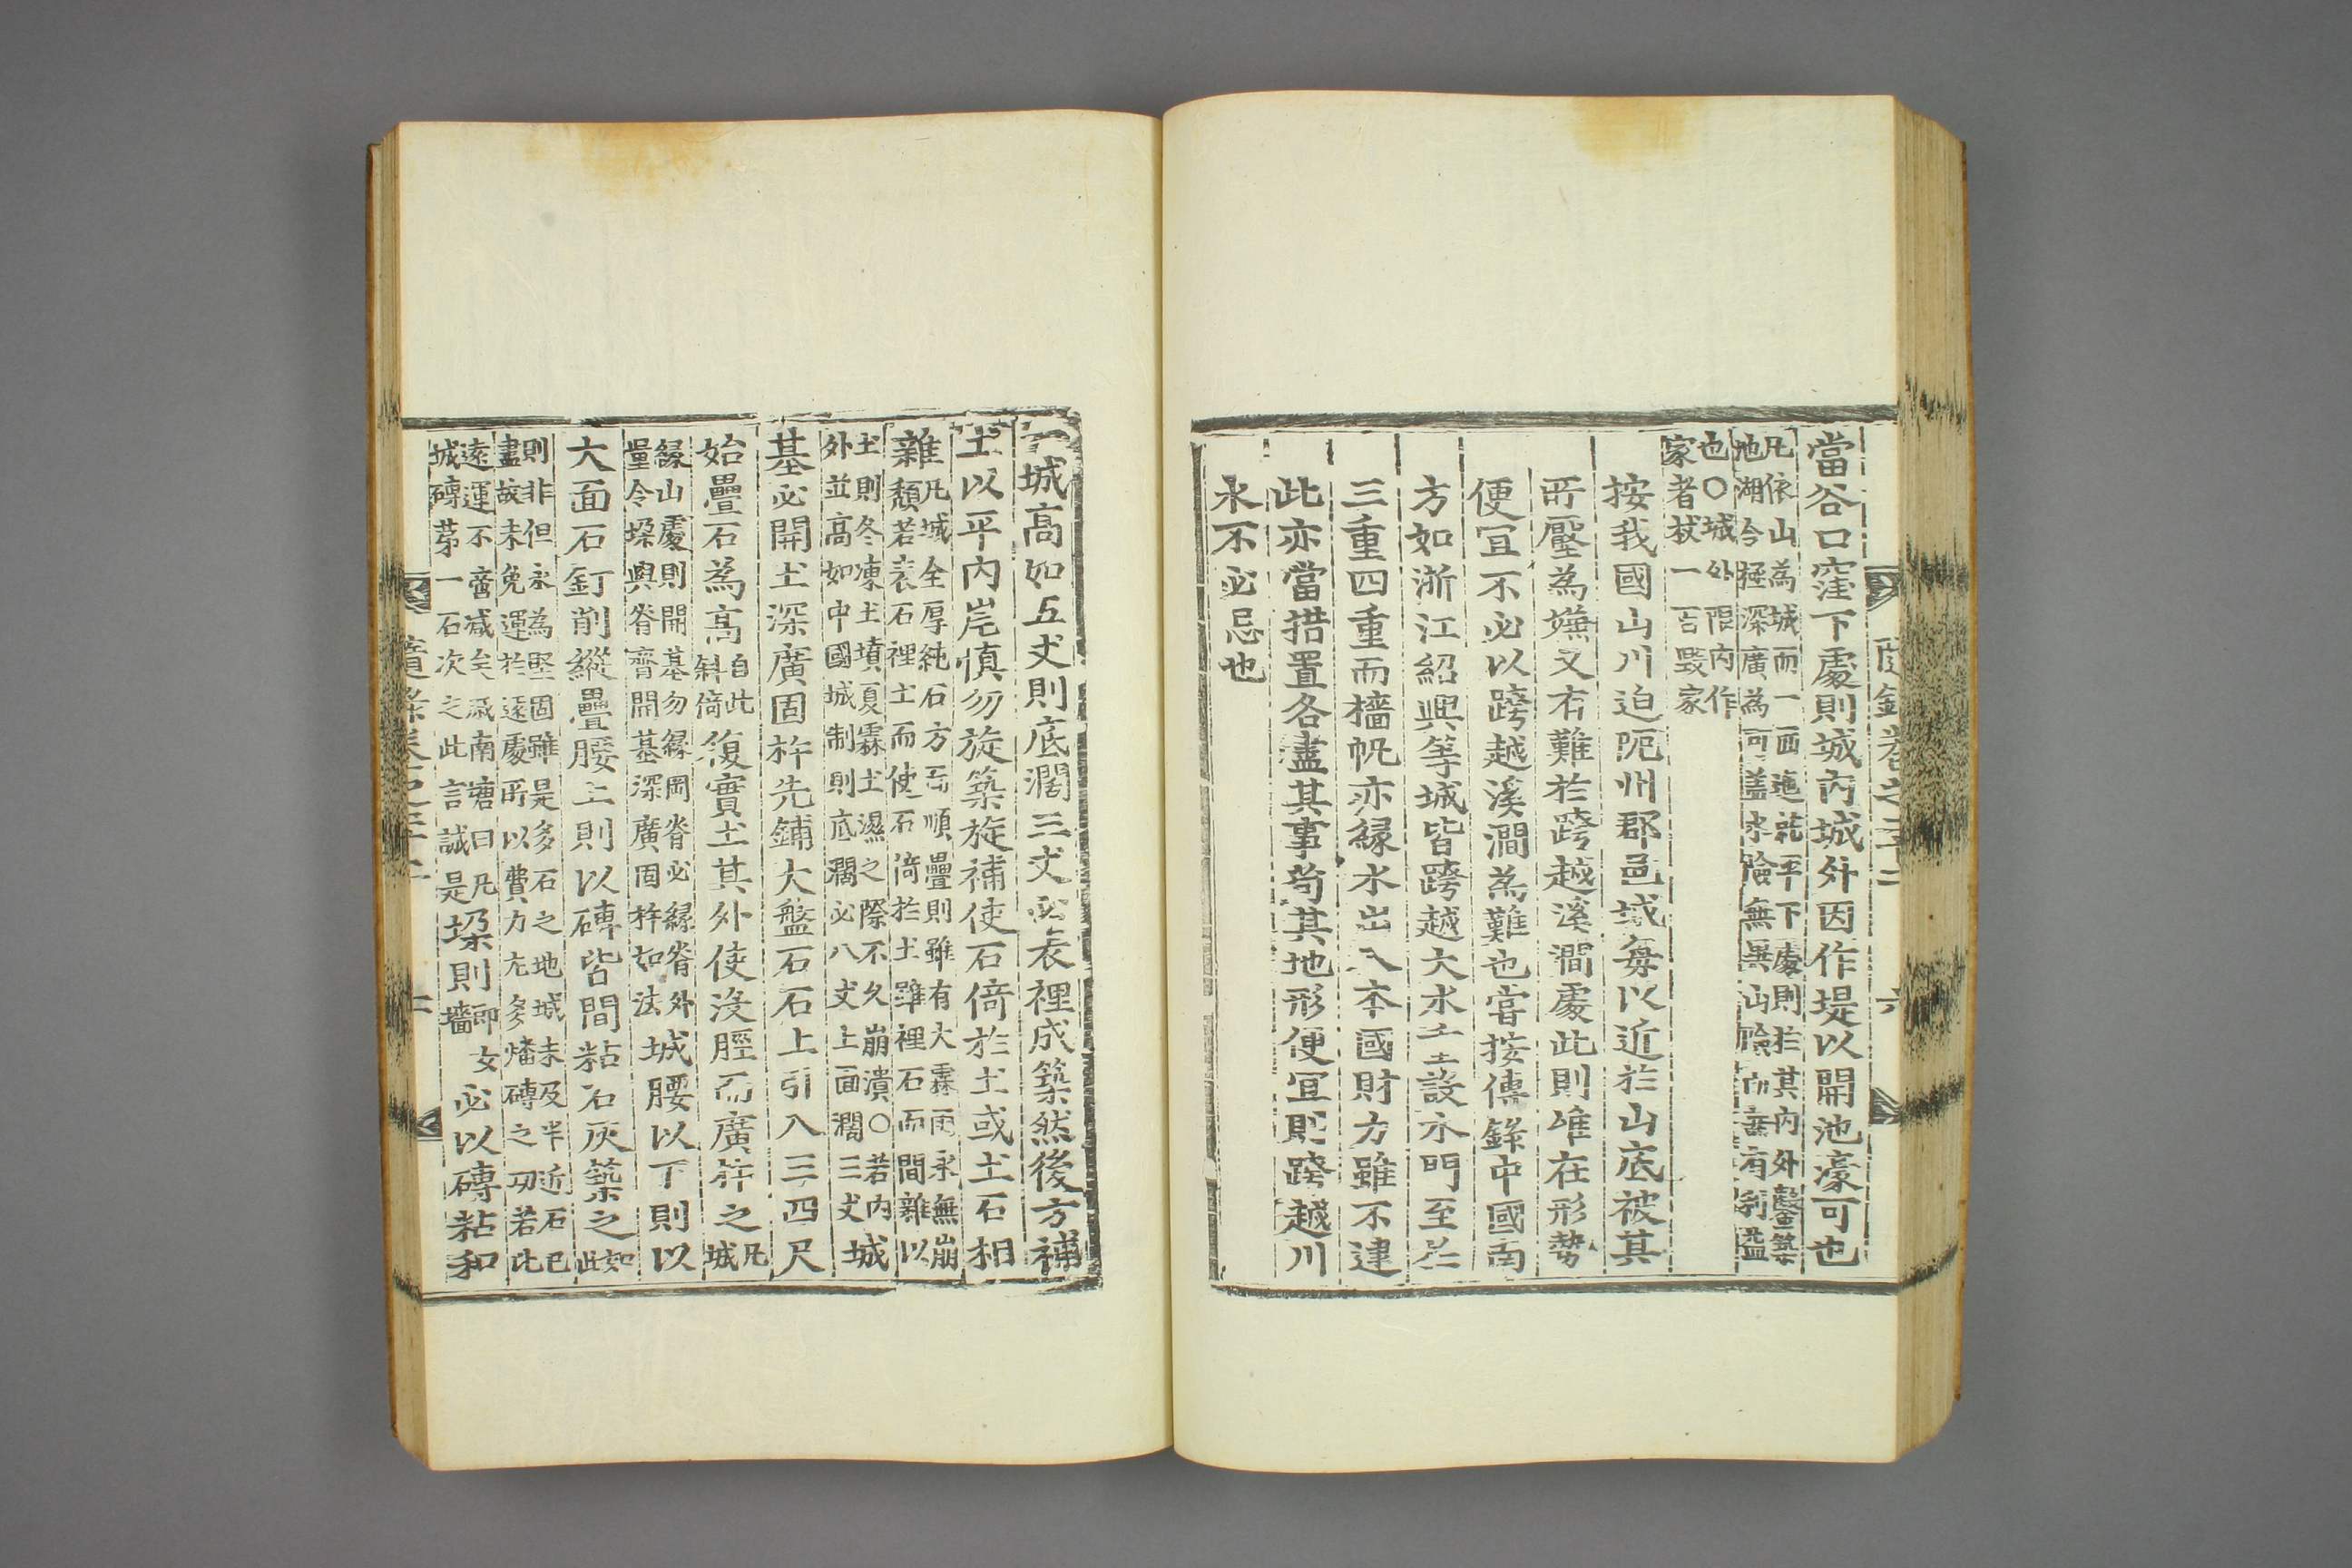 隨錄卷之二十二 六
當谷口窪下處則城內城外因作堤以開池濠可也
凡依山為城而一面迤 平下處則於其內外鑿築
池湖令極深廣為可盖水險無異山險而兼有利益
也○城外限內作
家者杖一百毀家
按我國山川迫阨州郡邑城每以近於山底被其
所壓為嫌又有難於跨越溪澗處此則唯在形勢
便宜不必以跨越溪澗為難也嘗按傳錄中國南
方如浙江紹興等城皆跨越大水 上設水門至於
三重四重而檣帆亦緣水出入本國財力雖不逮
此亦當措置各盡其事苟其地形便宜則跨越川
水不必忌也
一城高如五丈則底濶三丈必表裡成築然後方補
土以平內岸慎勿旋築旋補使石倚於土或土石相
雜頹
凡城全厚純石方正順疊則雖有大霖雨永無崩
若表石裡土而使石倚於土雖裡石而間雜以
土則冬凍土墳夏霖土濕之際不久崩潰○若內
外並高如中國城制則底濶必八丈上面濶三丈
城
基必開土深廣固杵先鋪大盤石石上引入三四尺
始疊石為高
自此
斜倚
復實土其外使沒脛而廣杵之
凡城
緣山處則開基勿緣岡脊必緣脊外
量令堞與脊齊開基深廣固杵如法
城腰以下則以
大面石釘削縱疊腰上則以磚皆間粘石灰築之
如此
則非但永為堅固雖是多石之地城未及半近石已
盡故未免運於遠處所以費力尤多燔磚之功若比
遠運不啻减矣戚南塘曰凡
城磚苐一石次之此言誠是
堞則
即女墻
必以磚粘和
隨錄卷之二十二 七